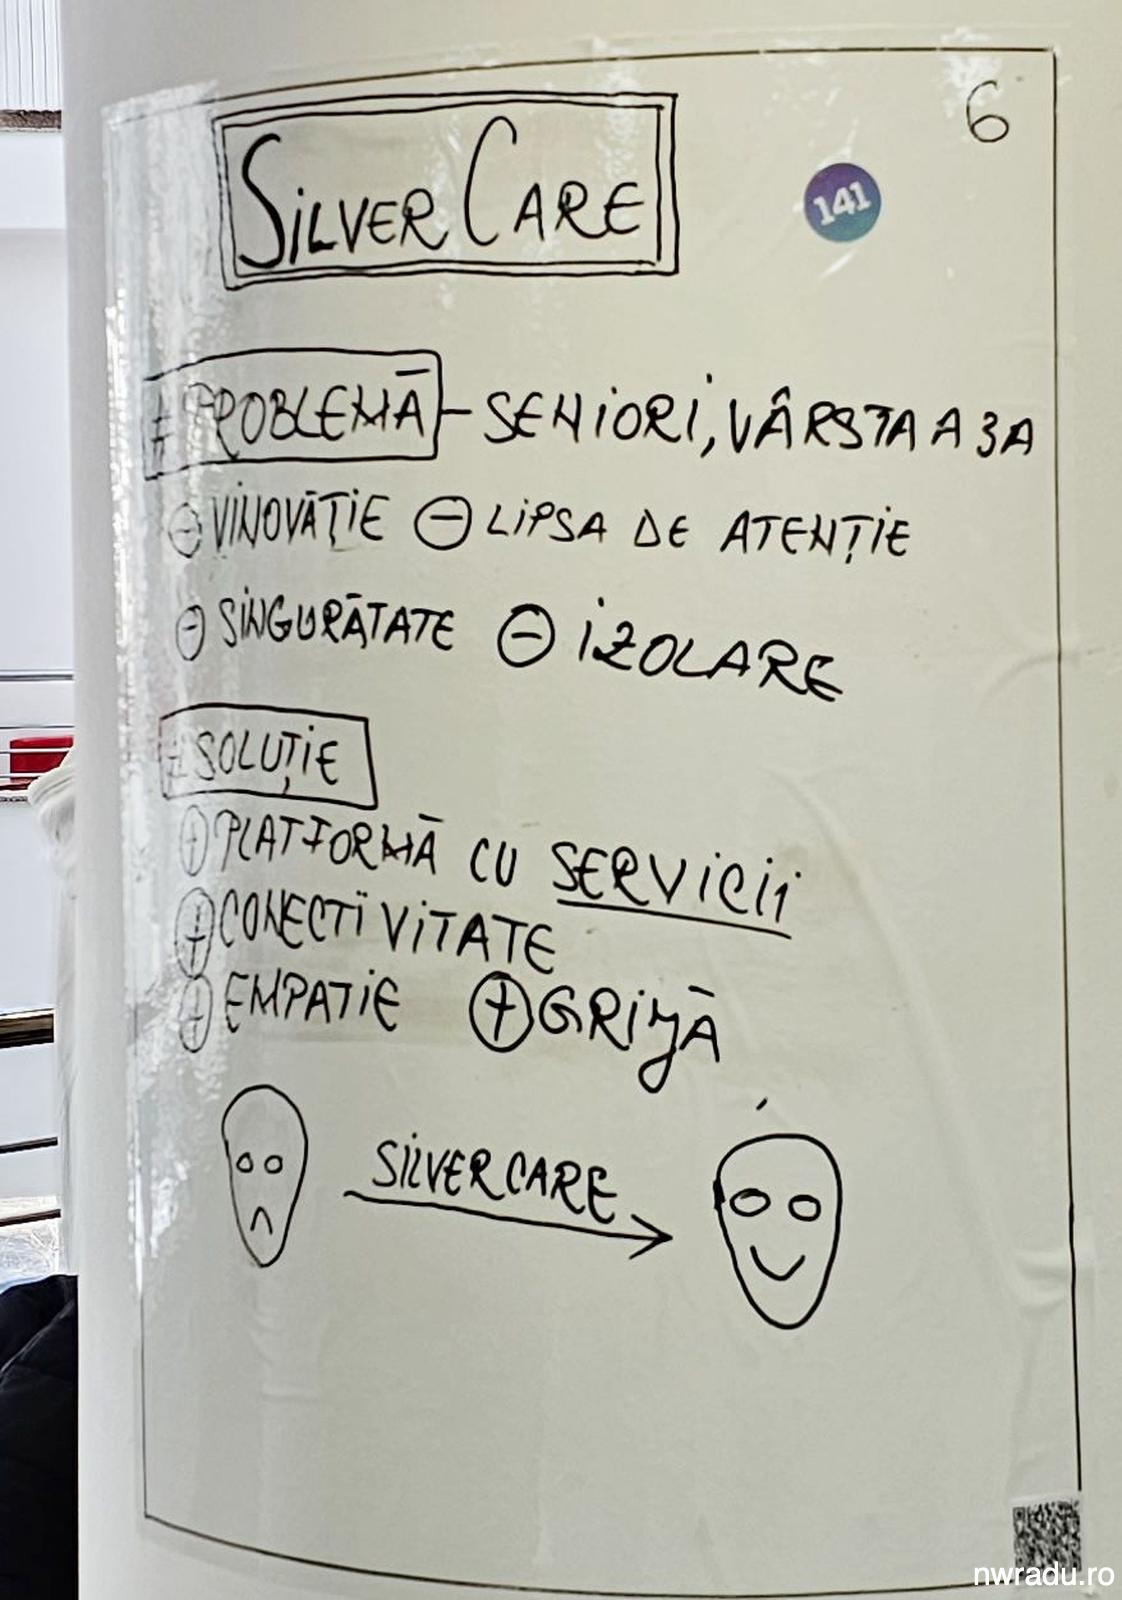 6
SiLVER CARE
141
# PROBLEMĂ - SENiORi, VÂRSTA A 3A
⊖ VINOVĂȚIE ⊖ LiPSA DE ATENȚiE
⊖ SINGURĂTATE ⊖ iZOLARE
# SOLUȚiE
⊕ PLATFORMĂ CU SERViCii
⊕ CONECTiViTATE
⊕ EMPATiE ⊕ GRiJĂ
SiLVER CARE
nwradu.ro